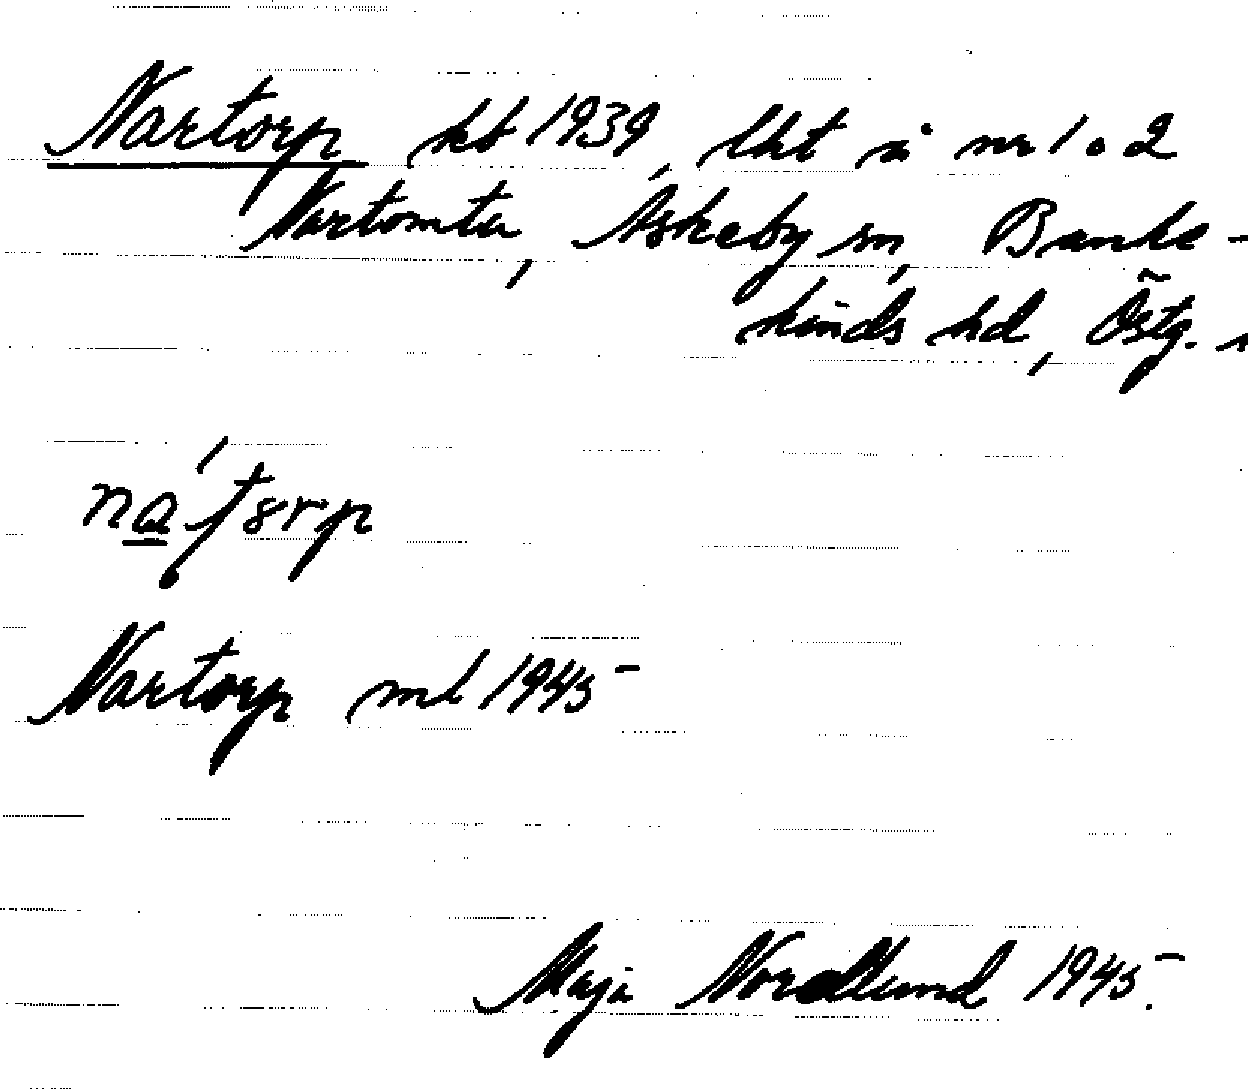 Nartorp kb 1939, lht å nr 1 o 2
Nartomta, Askeby sn, Banke-
kinds hd, Östg.
Nartorp ml 1945
Maja Nordlund 1945.